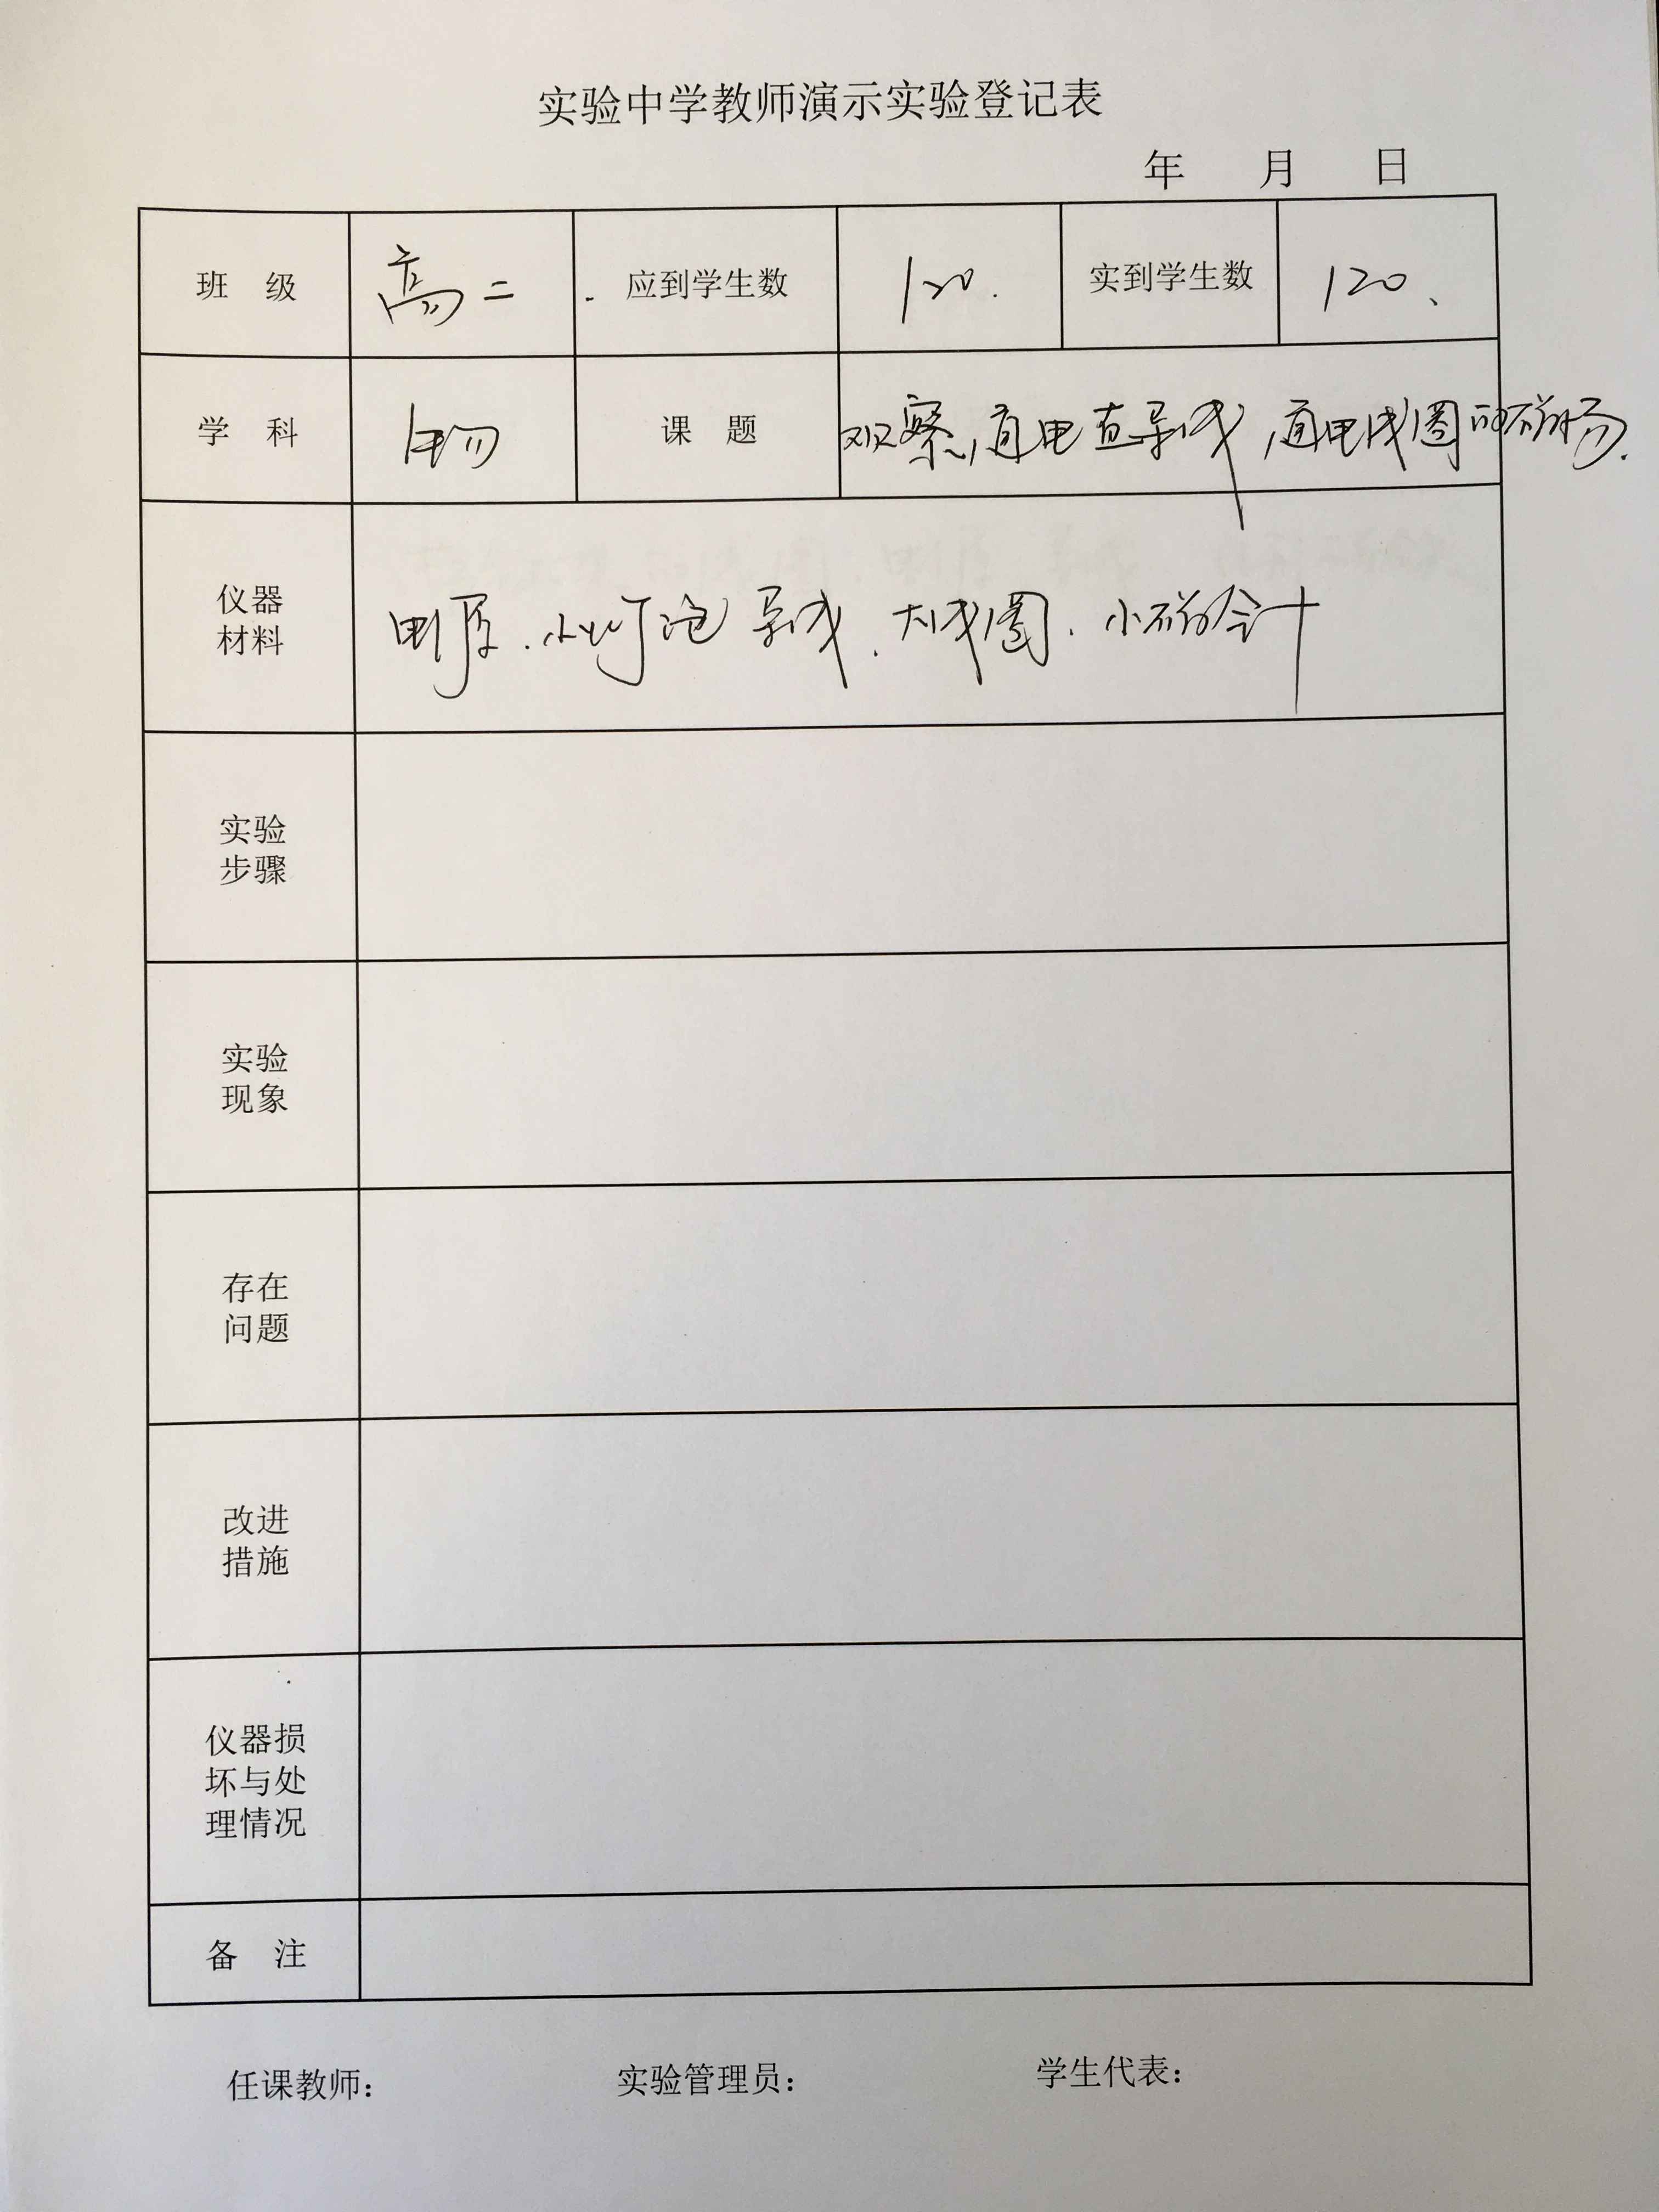 实验中学教师演示实验登记表
年 月 日
班 级 高二 应到学生数 120. 实到学生数 120、
学 科 物 课 题 观察通电直导线,通电线圈的磁场.
仪器 材料 电源.小灯泡 导线.大线圈.小磁针
实验
步骤
实验
现象
存在
问题
改进
措施
仪器损
坏与处
理情况
备 注
任课教师： 实验管理员： 学生代表：